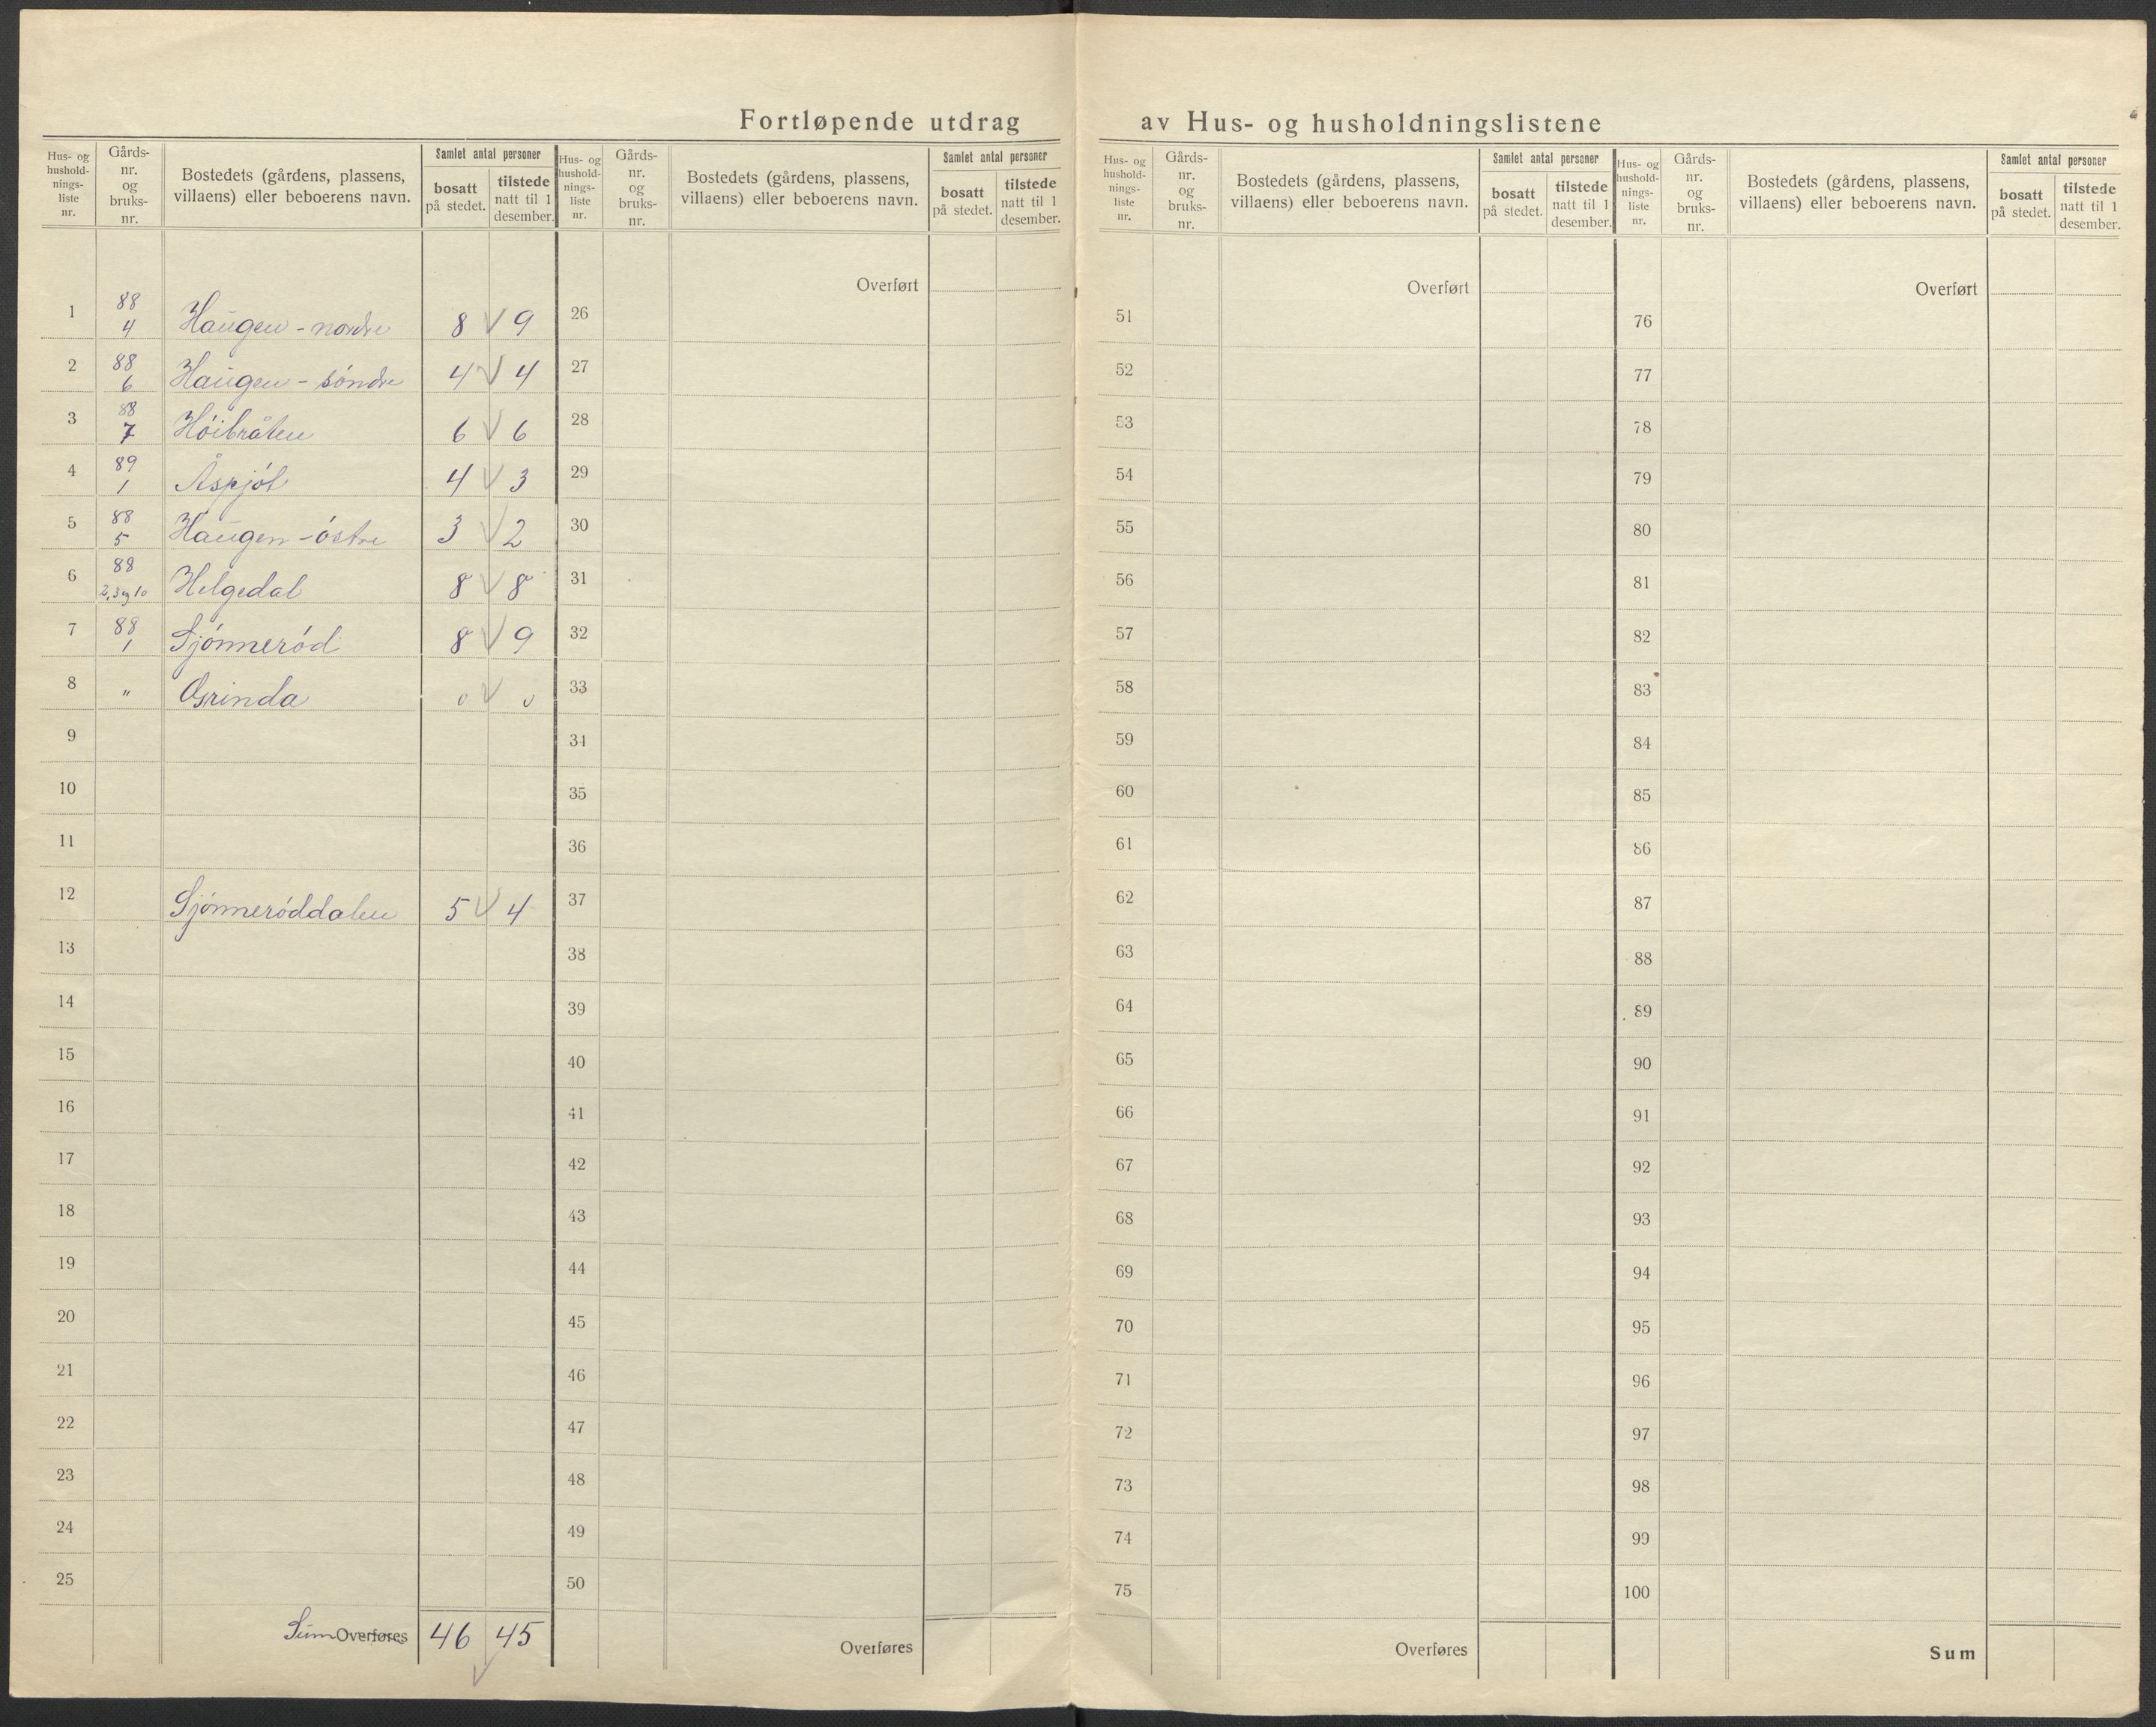 Fortløpende utdrag av Hus- og husholdningslistene
Hus- og hushold-nings-liste nr. | Gårds-nr. og bruks-nr. | Bostedets (gårdens, plassens, villaens) eller beboerens navn. | Samlet antal personer | bosatt på stedet. | tilstede natt til 1 desember.
1 | 88 4 | Haugen - nordre | 8 V 9
2 | 88 6 | Haugen - söndre | 4 V 4
3 | 88 7 | Höibråten | 6 V 6
4 | 89 1 | Åspjöl | 4 V 3
5 | 88 5 | Haugen - östre | 3 V 2
6 | 88 2, 3 og 10 | Helgedal | 8 V 8
7 | 88 1 | Sjönneröd | 8 V 9
8 | " | Grinda | 0 V 0
9
10
11
12 | Sjönneröddalen | 5 V 4
13
14
15
16
17
18
19
20
21
22
23
24
25
Sum Overføres | 46 | 45
Hus- og hushold-nings-liste nr. | Gårds-nr. og bruks-nr. | Bostedets (gårdens, plassens, villaens) eller beboerens navn. | Samlet antal personer | bosatt på stedet. | tilstede natt til 1 desember.
Overført
26
27
28
29
30
31
32
33
34
35
36
37
38
39
40
41
42
43
44
45
46
47
48
49
50
Overføres
Hus- og hushold-nings-liste nr. | Gårds-nr. og bruks-nr. | Bostedets (gårdens, plassens, villaens) eller beboerens navn. | Samlet antal personer | bosatt på stedet. | tilstede natt til 1 desember.
Overført
51
52
53
54
55
56
57
58
59
60
61
62
63
64
65
66
67
68
69
70
71
72
73
74
75
Overføres
Hus- og hushold-nings-liste nr. | Gårds-nr. og bruks-nr. | Bostedets (gårdens, plassens, villaens) eller beboerens navn. | Samlet antal personer | bosatt på stedet. | tilstede natt til 1 desember.
Overført
76
77
78
79
80
81
82
83
84
85
86
87
88
89
90
91
92
93
94
95
96
97
98
99
100
Sum